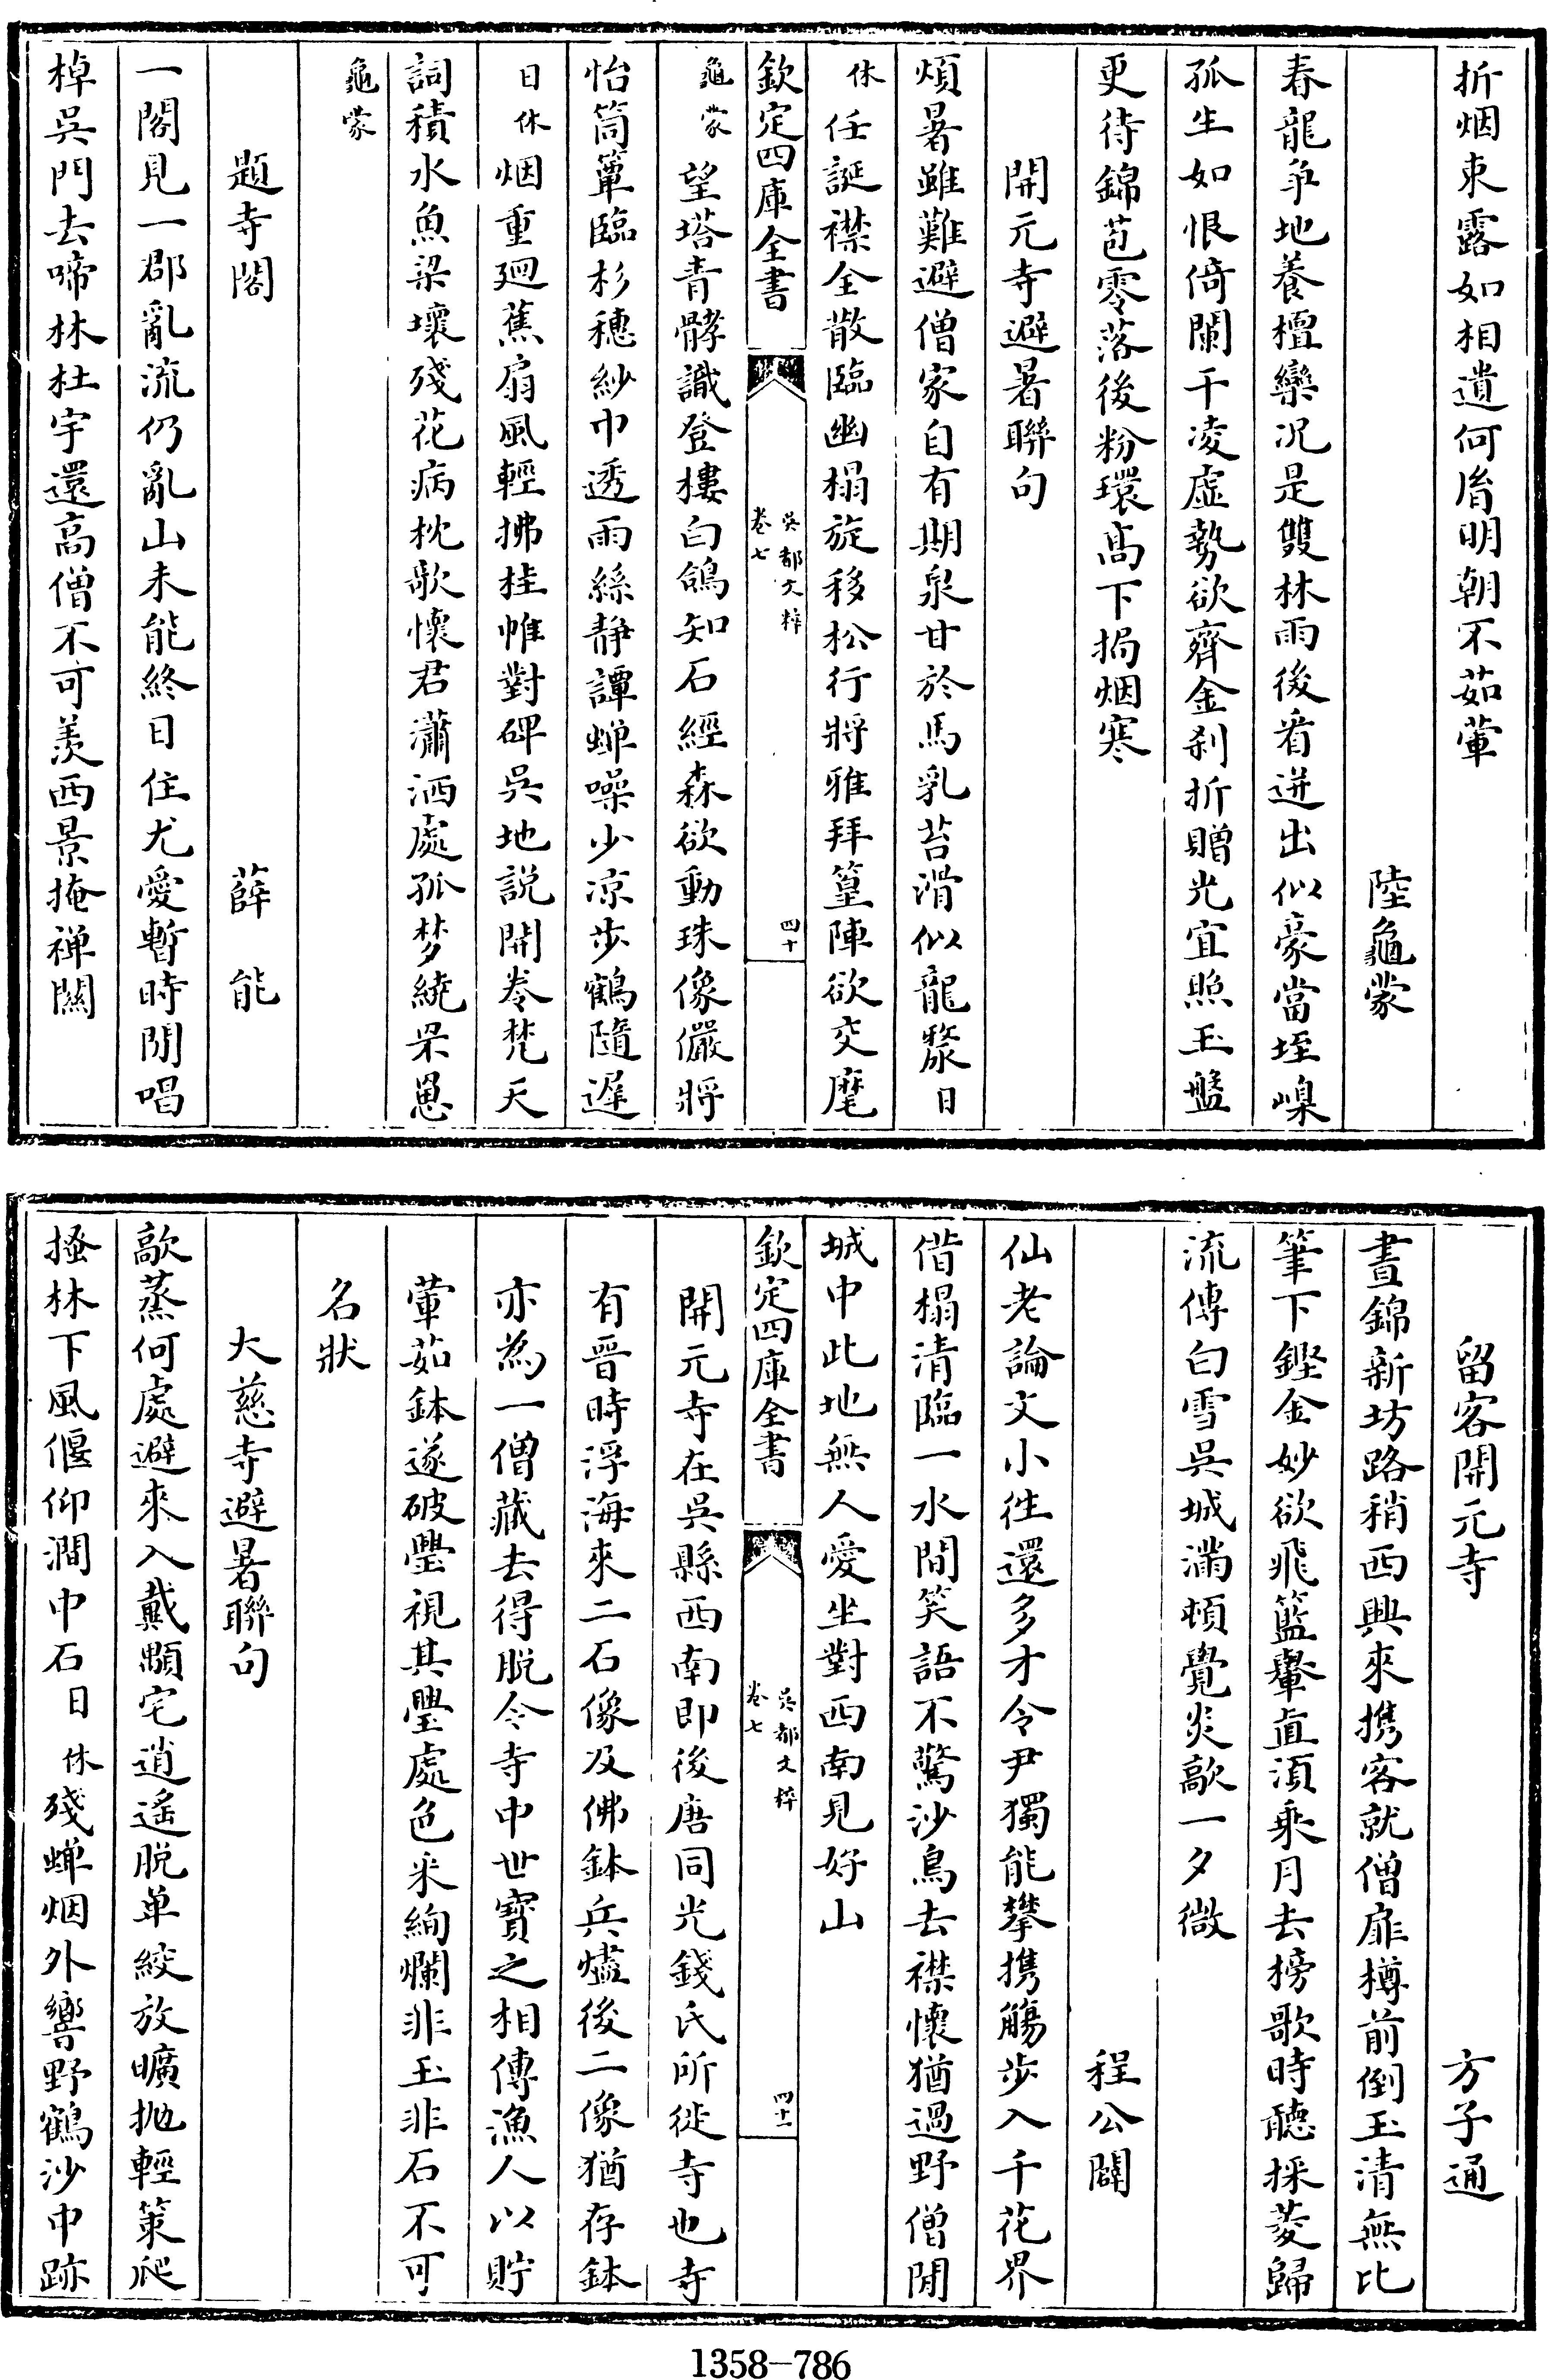 折烟束露如相遺何胤明朝不茹葷
陸龜蒙
春龍爭地養檀欒况是雙林雨後看迸出似豪當垤㠔
孤生如恨倚闌干凌虛勢欲齊金刹折贈光宜照玉盤
更待錦苞零落後粉環高下捣烟寒
開元寺避暑聯句
煩暑雖難避僧家自有期泉甘於馬乳苔滑似龍漦日
休任誕襟全散臨幽榻旋移松行將雅拜篁陣欲交麾
欽定四庫全書
吳都文粹
卷七
四十
龜蒙望塔青髇識登樓白鴿知石經森欲動珠像儼將
怡筒簟臨杉穗紗巾透雨絲静譚蟬噪少凉步鶴隨遲
日休烟重廻蕉扇風輕拂桂帷對碑吳地説開卷梵天
詞積水魚梁壞殘花病枕欹懷君瀟洒處孤梦繞罘罳
龜蒙
題寺閣
薛能
一閣見一郡亂流仍亂山未能終日住尤愛暫時閒唱
棹吳門去啼林杜宇還高僧不可羨西景掩禅關
留客開元寺
方子通
晝錦新坊路稍西興來携客就僧扉樽前倒玉清無比
筆下鏗金妙欲飛籃轝直湏乘月去榜歌時聽採菱歸
流傳白雪吳城滿頓覺炎歊一夕微
程公闢
仙老論文小徃還多才令尹獨能攀携觴步入千花界
偕榻清臨一水間笑語不驚沙鳥去襟懷猶過野僧閒
城中此地無人愛坐對西南見好山
欽定四庫全書
吳都文粹
卷七
四十一
開元寺在吳縣西南即後唐同光錢氏所徙寺也寺
有晋時浮海來二石像及佛鉢兵燼後二像猶存鉢
亦為一僧藏去得脱今寺中世寳之相傳漁人以貯
葷茹鉢遂破璺視其璺處色采絢爛非玉非石不可
名狀
大慈寺避暑聯句
歊蒸何處避來入戴顒宅逍遙脱单絞放曠抛輕策爬
搔林下風偃仰澗中石日休殘蟬烟外響野鶴沙中跡
1358-786